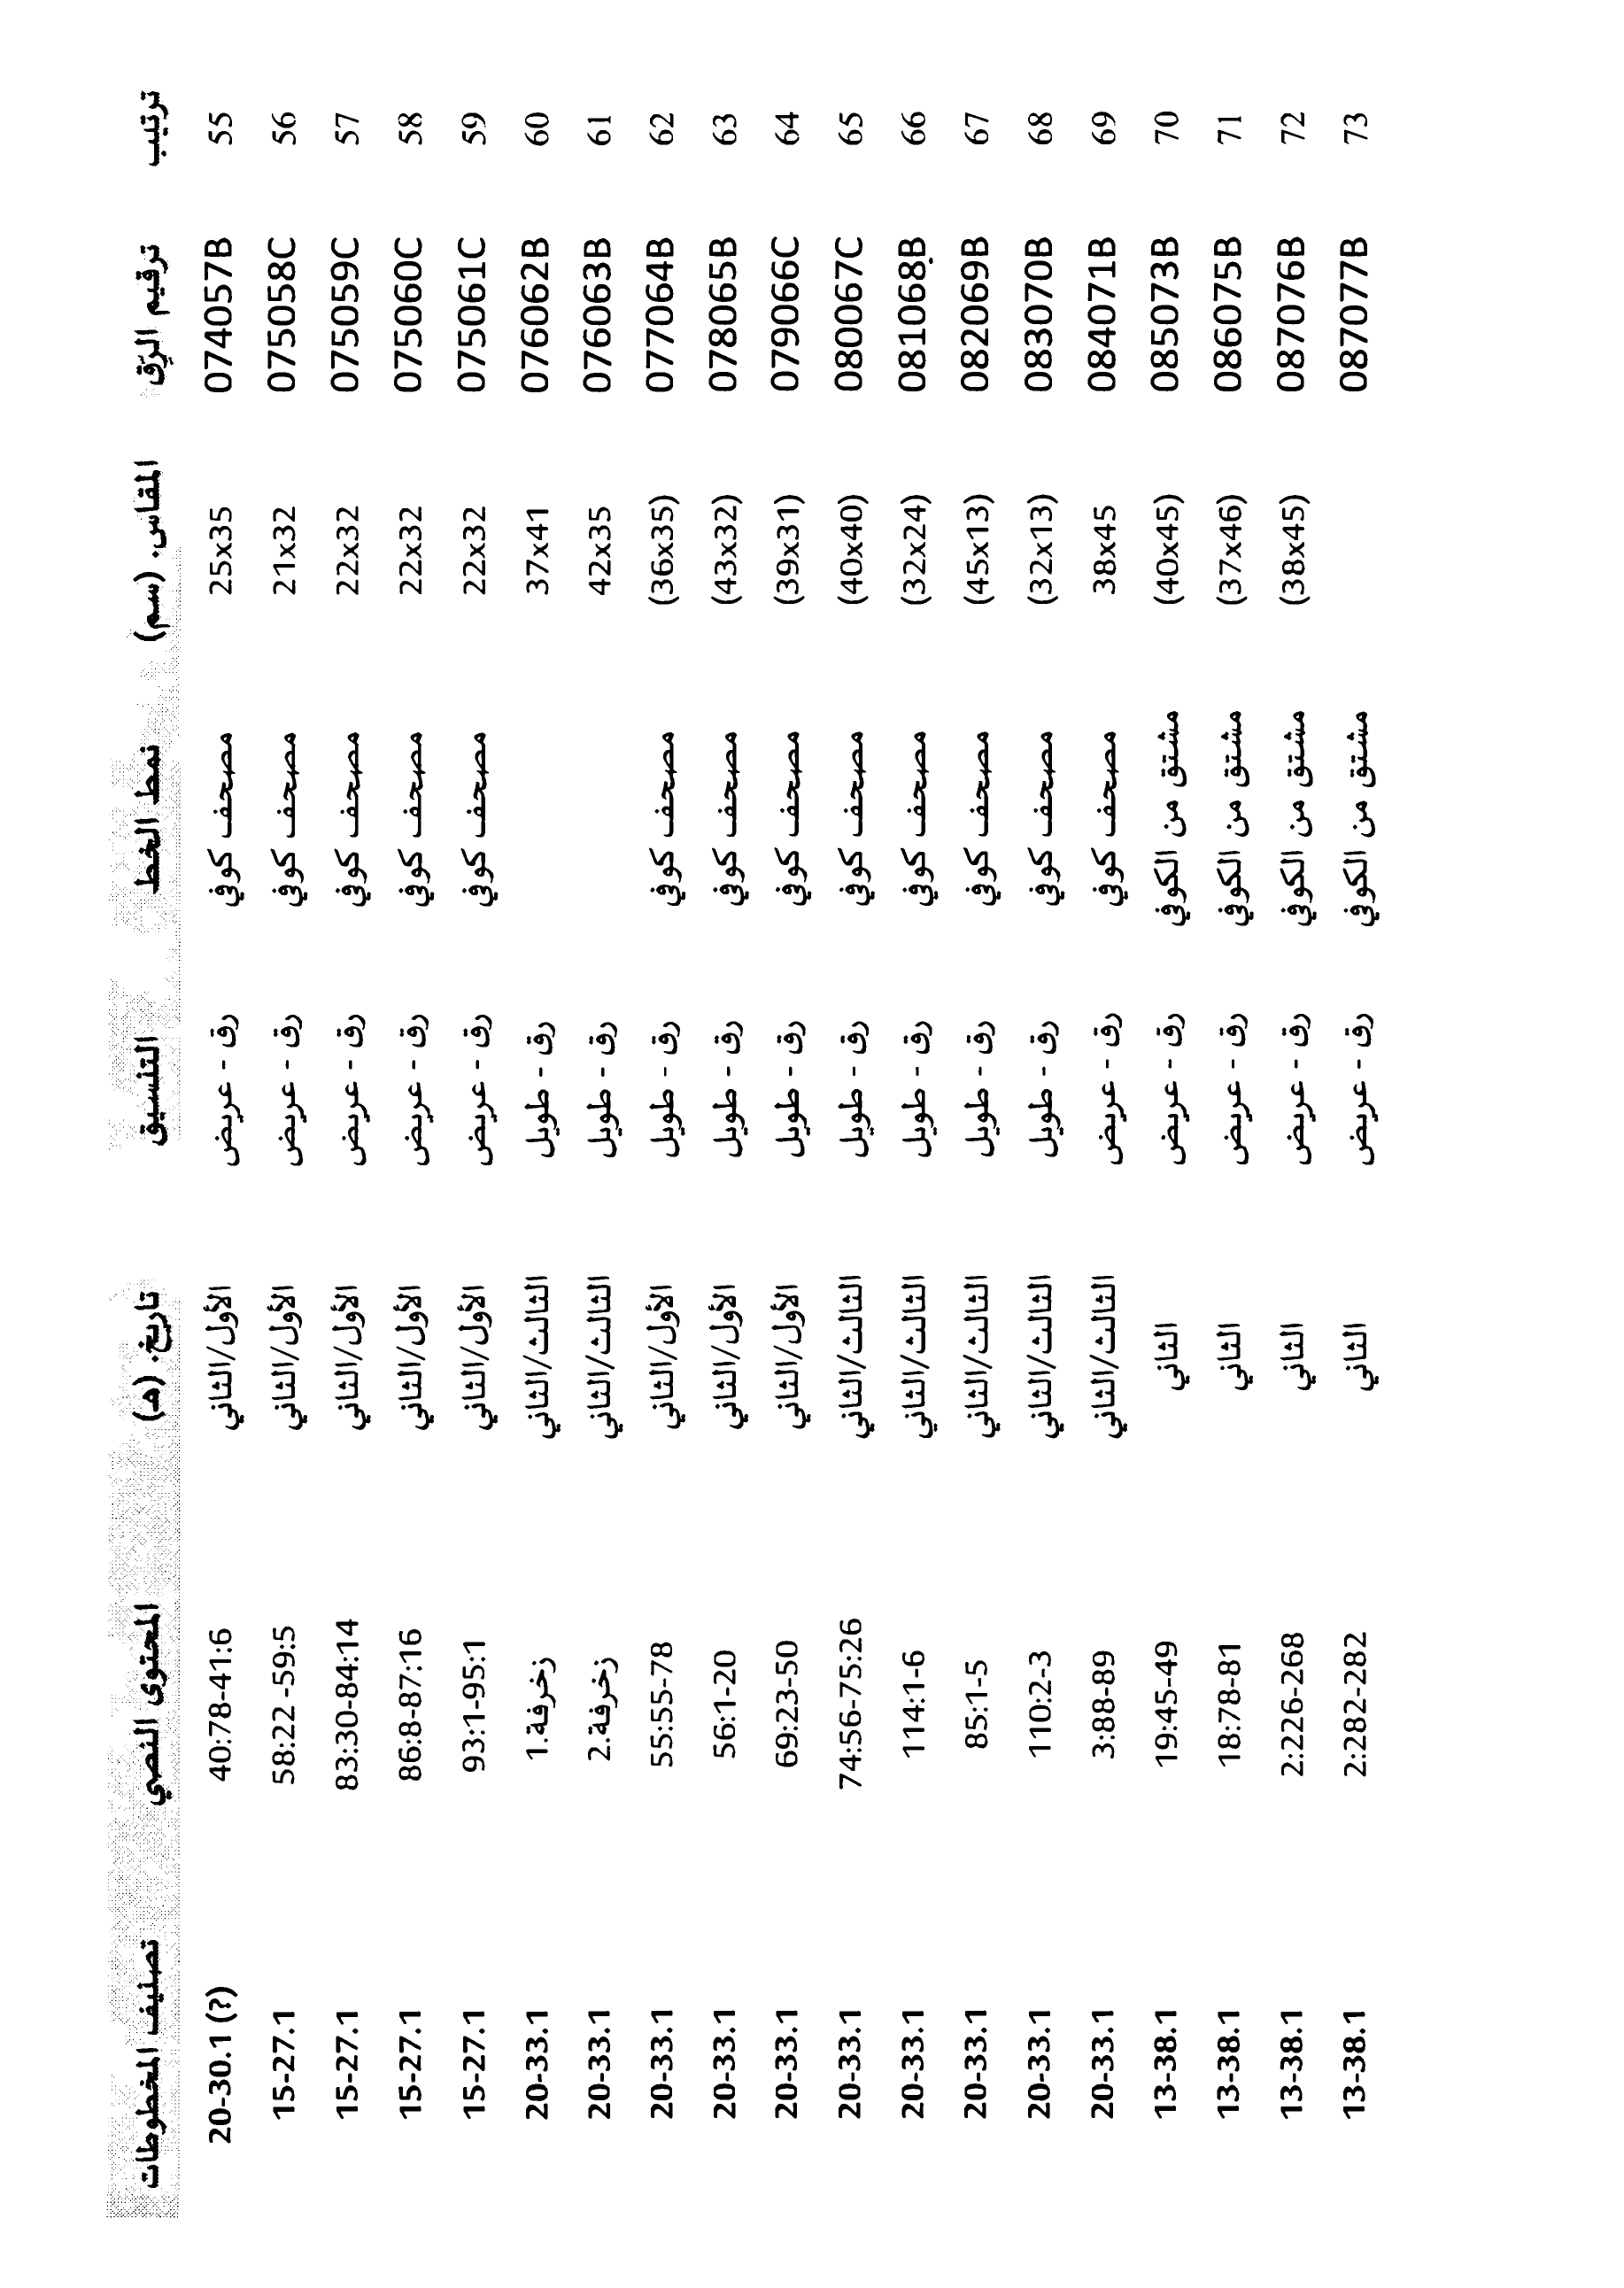 ترتيب ترقيم الرّق المقاس. (سم) نمط الخط التنسيق تاريخ. (ه) المحتوى النصي تصنيف المخطوطات
55 074057B 25x35 مصحف كوفي رق - عريض الأول/الثاني 40:78-41:6 20-30.1 (?)
56 075058C 21x32 مصحف كوفي رق - عريض الأول/الثاني 58:22 -59:5 15-27.1
57 075059C 22x32 مصحف كوفي رق - عريض الأول/الثاني 83:30-84:14 15-27.1
58 075060C 22x32 مصحف كوفي رق - عريض الأول/الثاني 86:8-87:16 15-27.1
59 075061C 22x32 مصحف كوفي رق - عريض الأول/الثاني 93:1-95:1 15-27.1
60 076062B 37x41 رق - طويل الثالث/الثاني زخرفة.1 20-33.1
61 076063B 42x35 رق - طويل الثالث/الثاني زخرفة.2 20-33.1
62 077064B (36x35) مصحف كوفي رق - طويل الأول/الثاني 55:55-78 20-33.1
63 078065B (43x32) مصحف كوفي رق - طويل الأول/الثاني 56:1-20 20-33.1
64 079066C (39x31) مصحف كوفي رق - طويل الأول/الثاني 69:23-50 20-33.1
65 080067C (40x40) مصحف كوفي رق - طويل الثالث/الثاني 74:56-75:26 20-33.1
66 081068B (32x24) مصحف كوفي رق - طويل الثالث/الثاني 114:1-6 20-33.1
67 082069B (45x13) مصحف كوفي رق - طويل الثالث/الثاني 85:1-5 20-33.1
68 083070B (32x13) مصحف كوفي رق - طويل الثالث/الثاني 110:2-3 20-33.1
69 084071B 38x45 مصحف كوفي رق - عريض الثالث/الثاني 3:88-89 20-33.1
70 085073B (40x45) مشتق من الكوفي رق - عريض الثاني 19:45-49 13-38.1
71 086075B (37x46) مشتق من الكوفي رق - عريض الثاني 18:78-81 13-38.1
72 087076B (38x45) مشتق من الكوفي رق - عريض الثاني 2:226-268 13-38.1
73 087077B مشتق من الكوفي رق - عريض الثاني 2:282-282 13-38.1